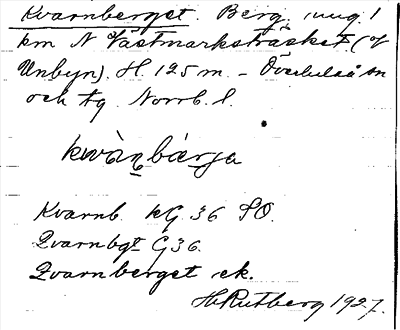 Kvarnberget. Berg, ung. 1
km N Västmarksträsket (vf
Unbyn). H. 125 m. – Överluleå sn
och tg Norrb. l.
kwàn̥bærja
Kvarnb. kG. 36 SO.
Qvarnbgt G 36.
Qvarnberget ek.
H Rutberg 1927.